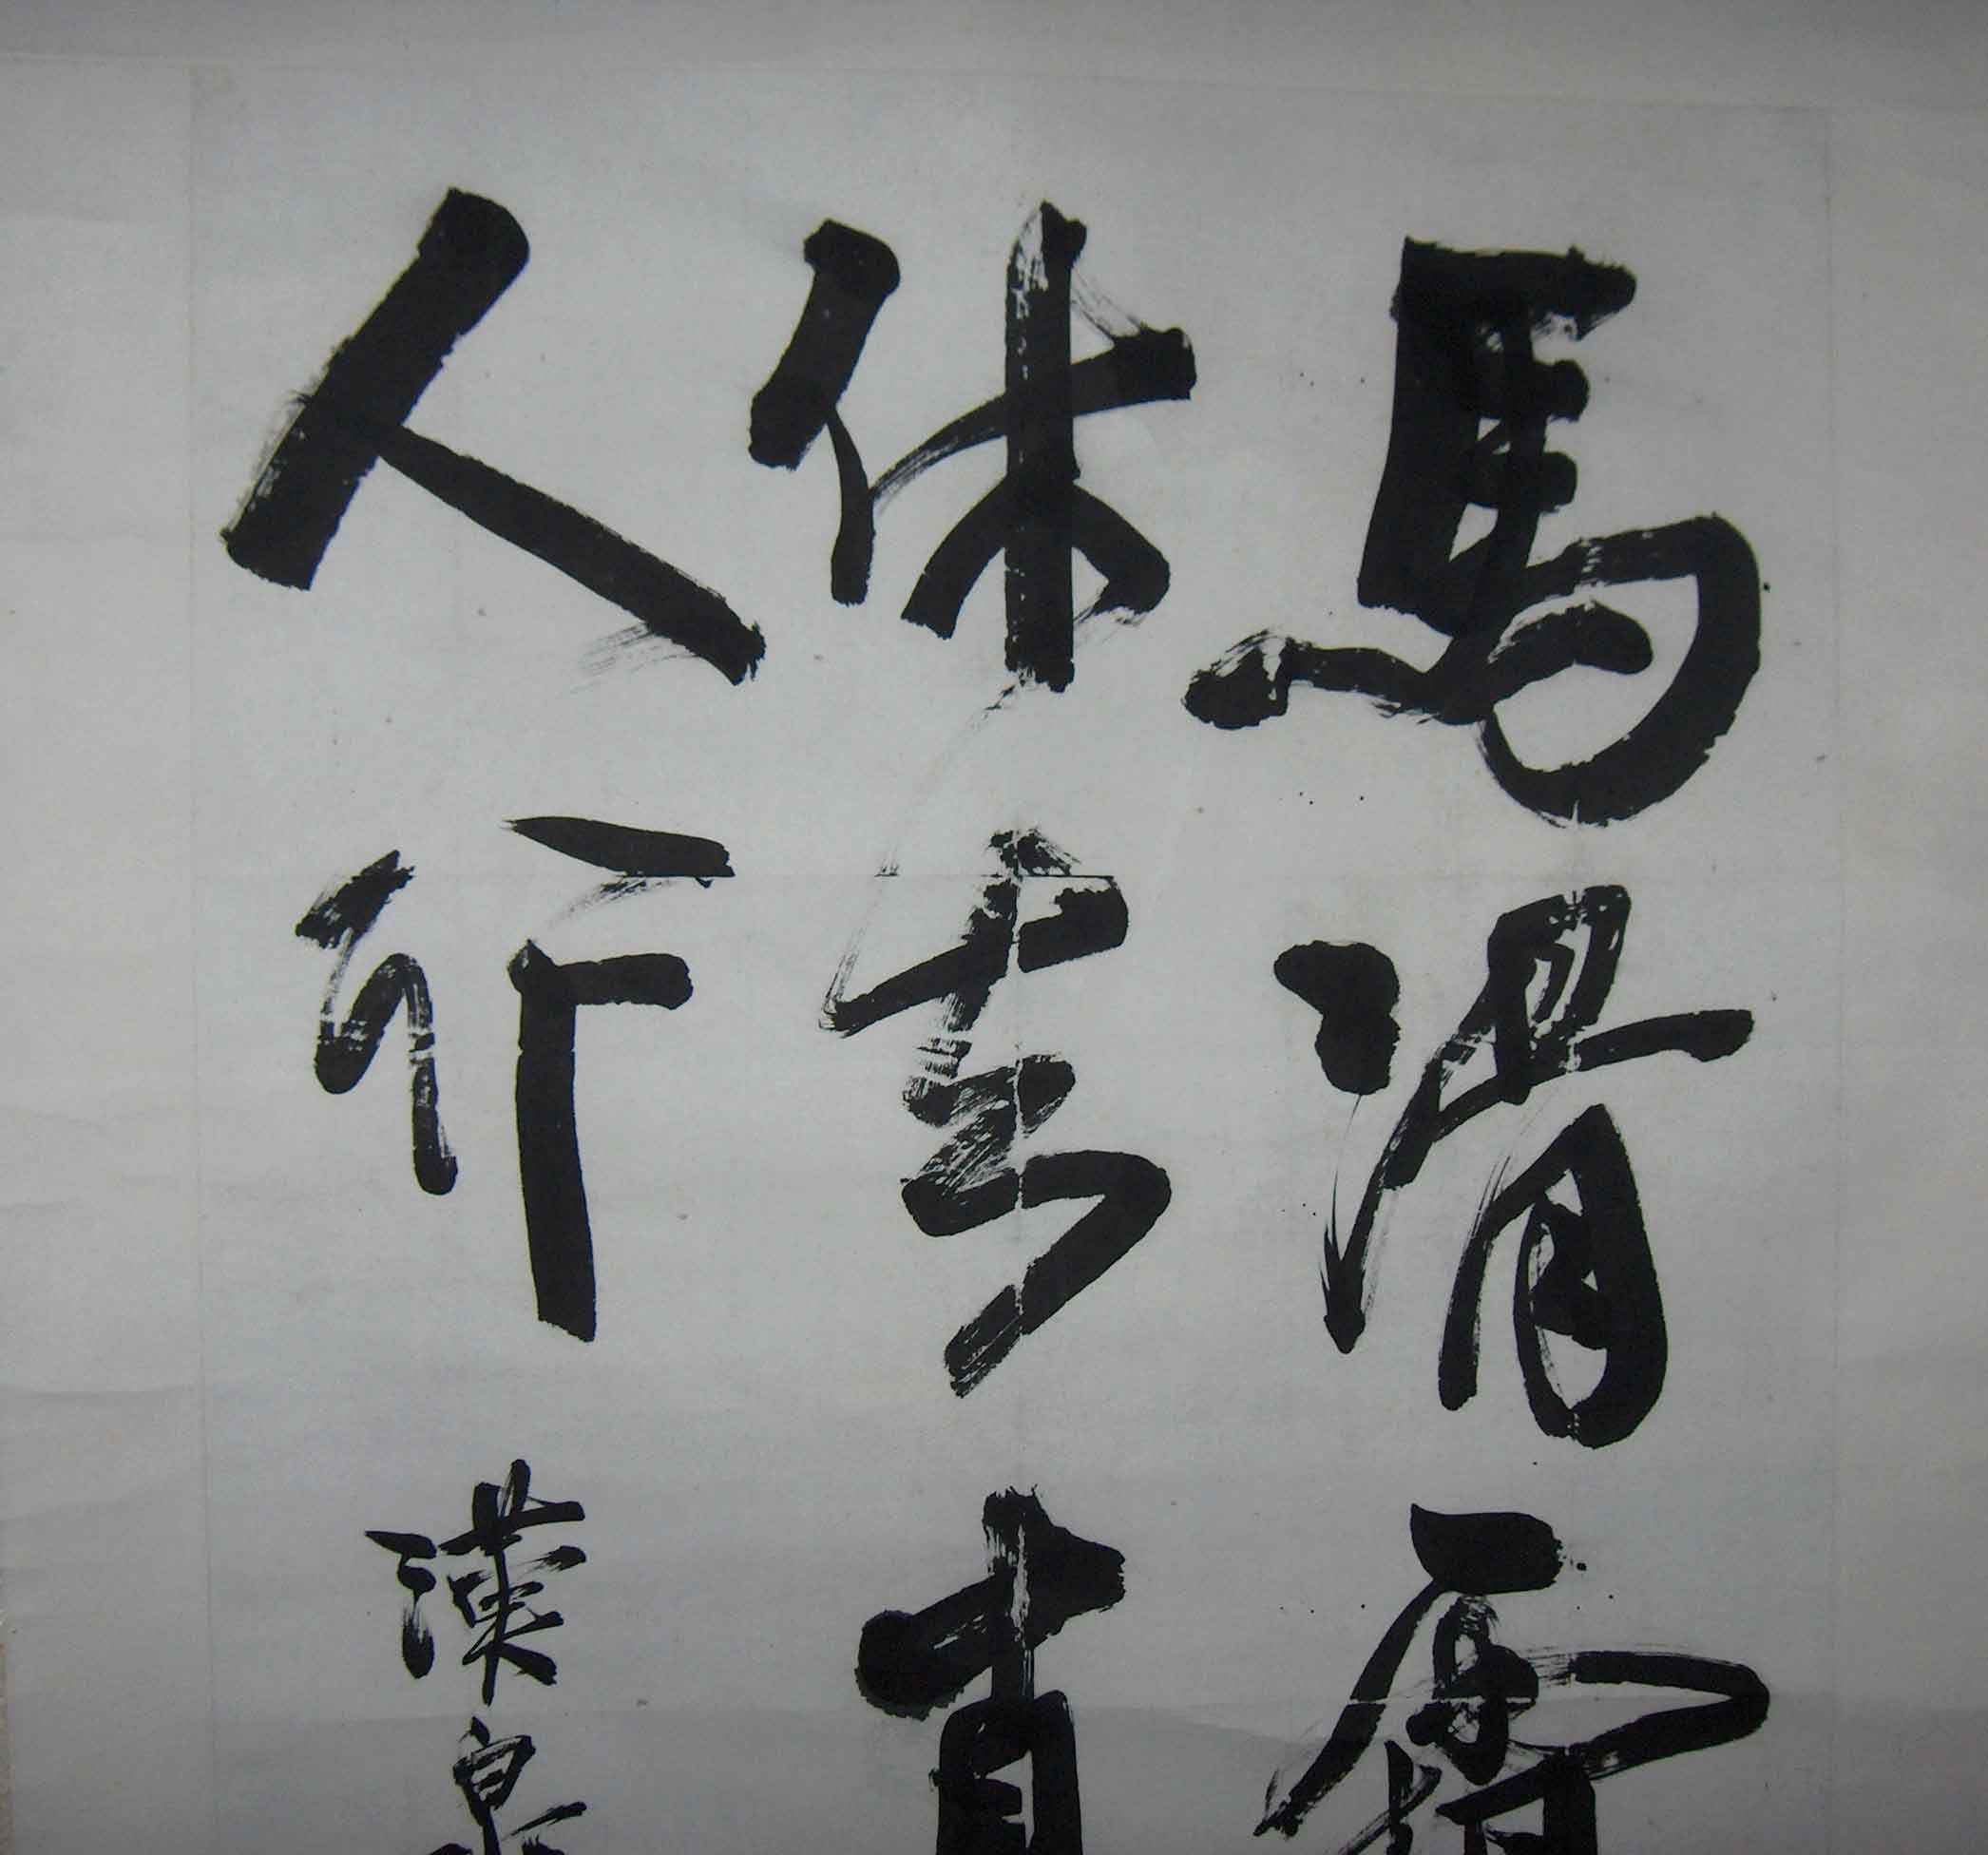 馬滑霜
休去直
人行
漢泉